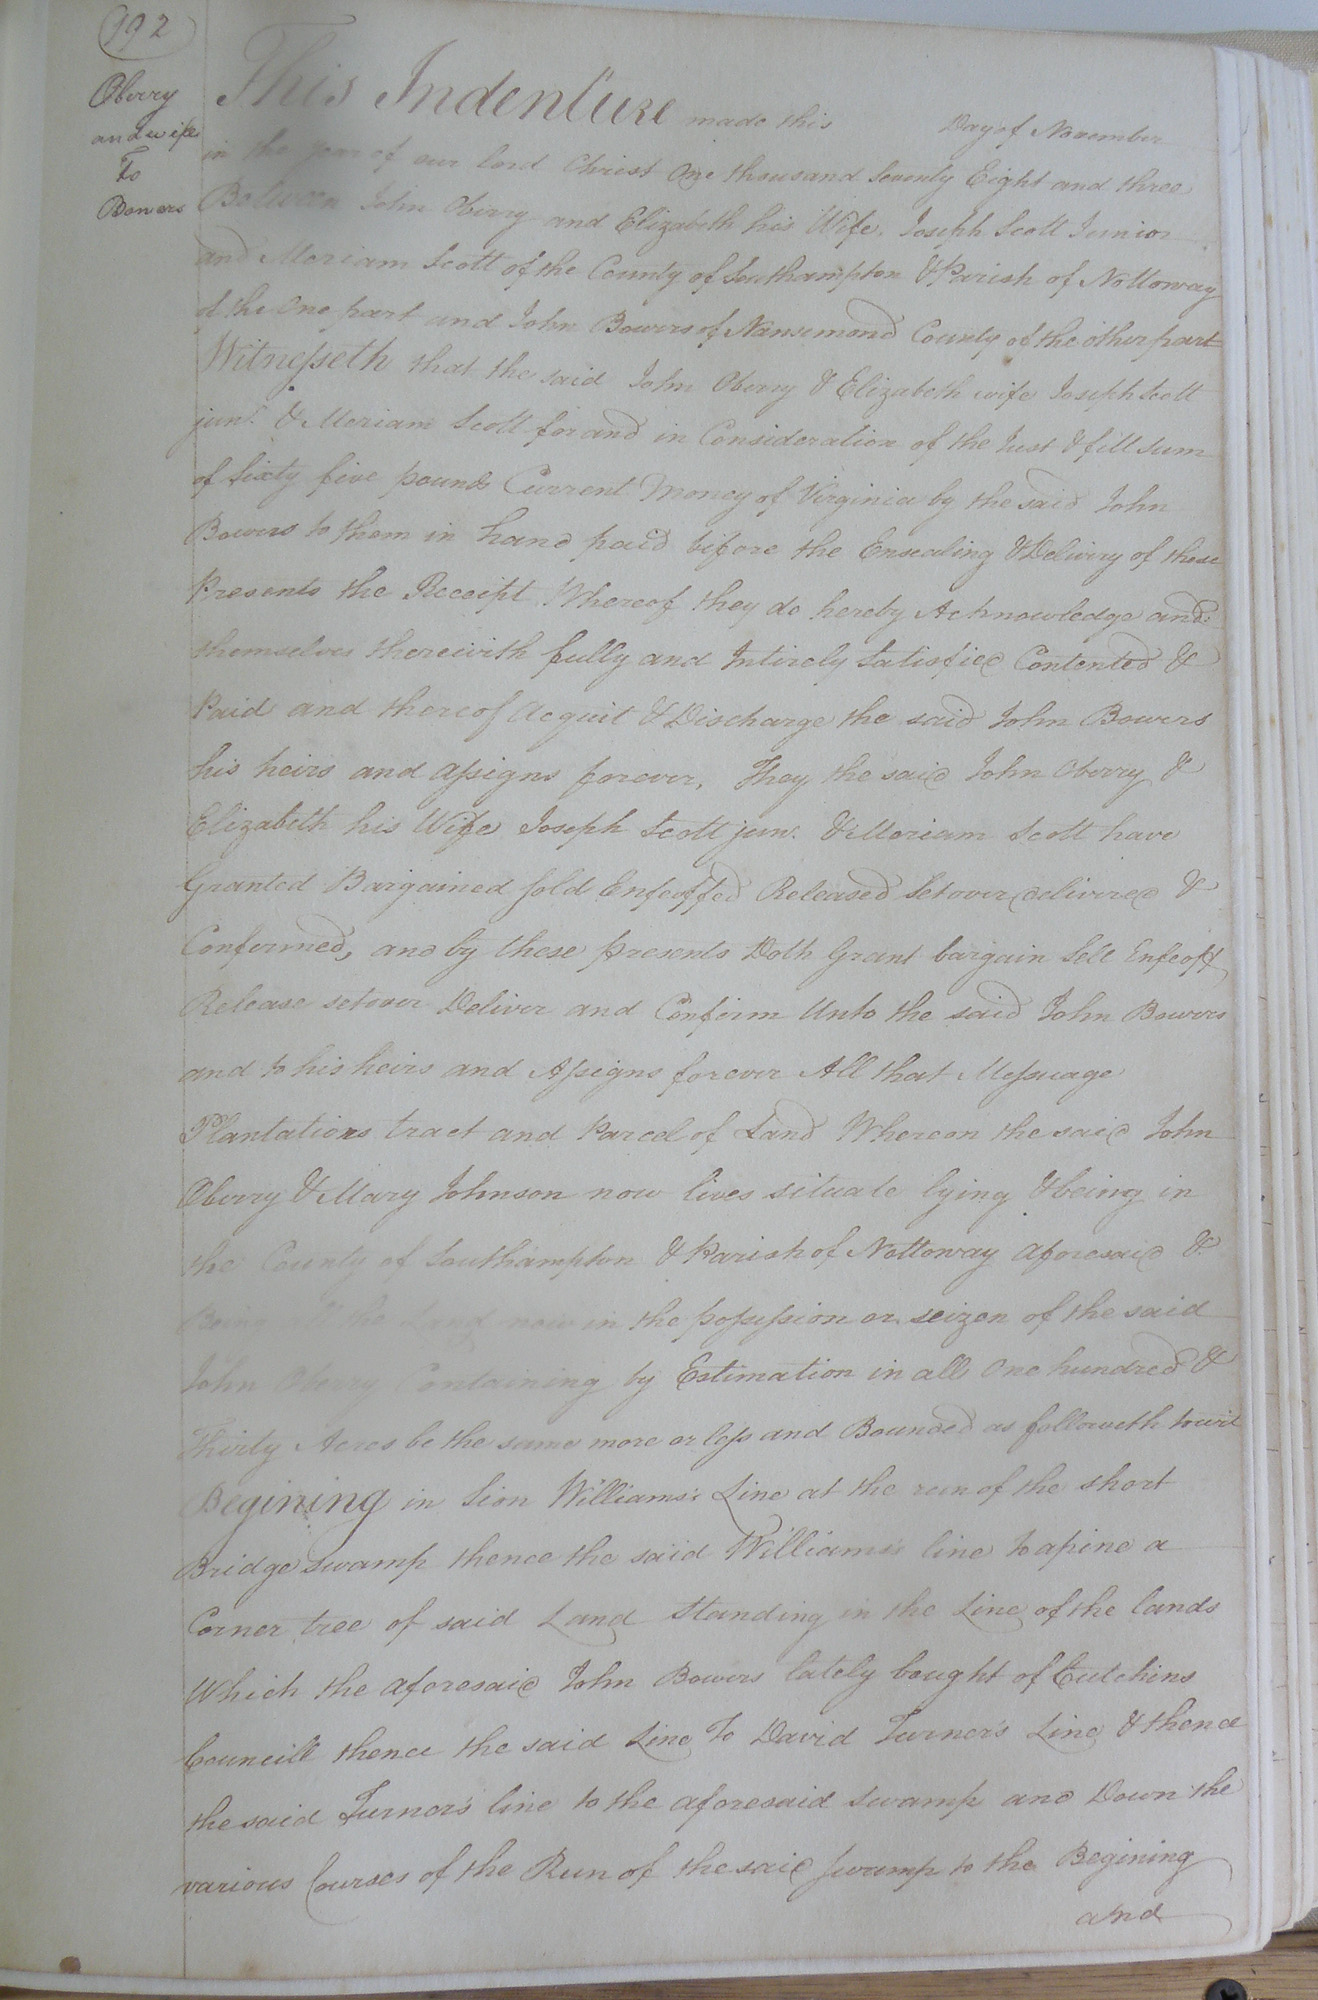 992
Oberry
and wife
To
Bowers
This Indenture made this Day of November
in the year of our lord Christ One thousand Seventy Eight and three
Between John Oberry and Elizabeth his Wife, Joseph Scott Junior
and Meriam Scott of the County of Southampton & Parish of Nottoway
of the One part and John Bowers of Nansemond County of the other part
Witnesseth that the said John Oberry & Elizabeth wife Joseph Scott
junr. & Meriam Scott for and in Consideration of the Just & fill sum
of Sixty five pounds Current Money of Virginia by the said John
Bowers to them in hand paid before the Ensealing & Delivery of these
Presents the Receipt Whereof they do hereby Acknowledge and
themselves therewith fully and Intirely Satisfied Contented &
Paid and thereof Acquit & Discharge the said John Bowers
his heirs and assigns forever, They the said John Oberry &
Elizabeth his Wife Joseph Scott jun. & Meriam Scott have
Granted Bargained sold Enfeoffed Released Setover delivered &
Confirmed, and by these presents Doth Grant bargain Sell Enfeoff
Release setover Deliver and Confirm Unto the said John Bowers
and to his heirs and Assigns forever All that Messuage
Plantations tract and Parcel of Land Whereon the said John
Oberry & Mary Johnson now lives situate lying & being in
the County of Southampton & Parish of Nottoway aforesaid &
Being all the Land now in the possession or seizen of the said
John Oberry Containing by Estimation in all One hundred &
Thirty Acres be the same more or less and Bounded as followeth towit
Begining in Sion Williams's Line at the run of the short
Bridge swamp thence the said Williams's line to a pine a
Corner tree of said Land Standing in the Line of the lands
Which the aforesaid John Bowers lately bought of Cutchins
Councill thence the said Line To David Turner's Line & thence
the said Turner's line to the aforesaid swamp and Down the
various Courses of the Run of the said swamp to the Begining
and